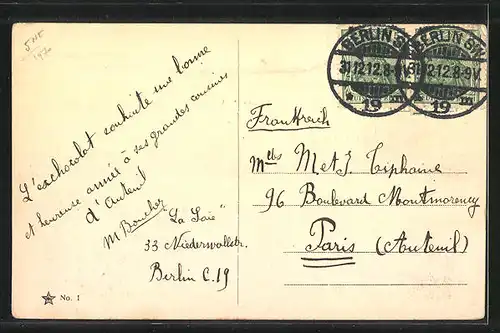 L'exchocolat souhaite une bonne
et heureuse année à ses grandes cousines
d'Auteuil
M Boucher
"La Soie"
33 Niederwallstr.
Berlin C.19
No. 1
BERLIN SW
31.12.12.8-9V.
* 19
BERLIN SW
31.12.12.8-9V.
19
Frankreich
Mlles M et J. Tiphaine
96 Boulevard Montmorency
Paris (Auteuil)